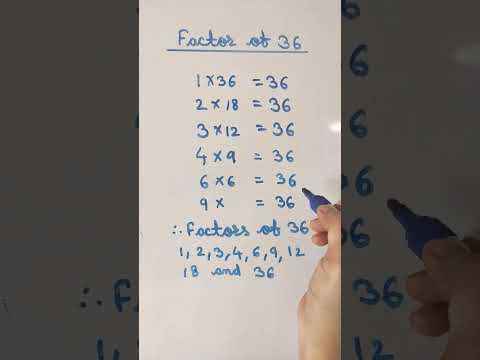 Factor of 36
1 × 36 = 36
2 × 18 = 36
3 × 12 = 36
4 × 9 = 36
6 × 6 = 36
9 × = 36
∴ Factors of 36
1, 2, 3, 4, 6, 9, 12
18 and 36